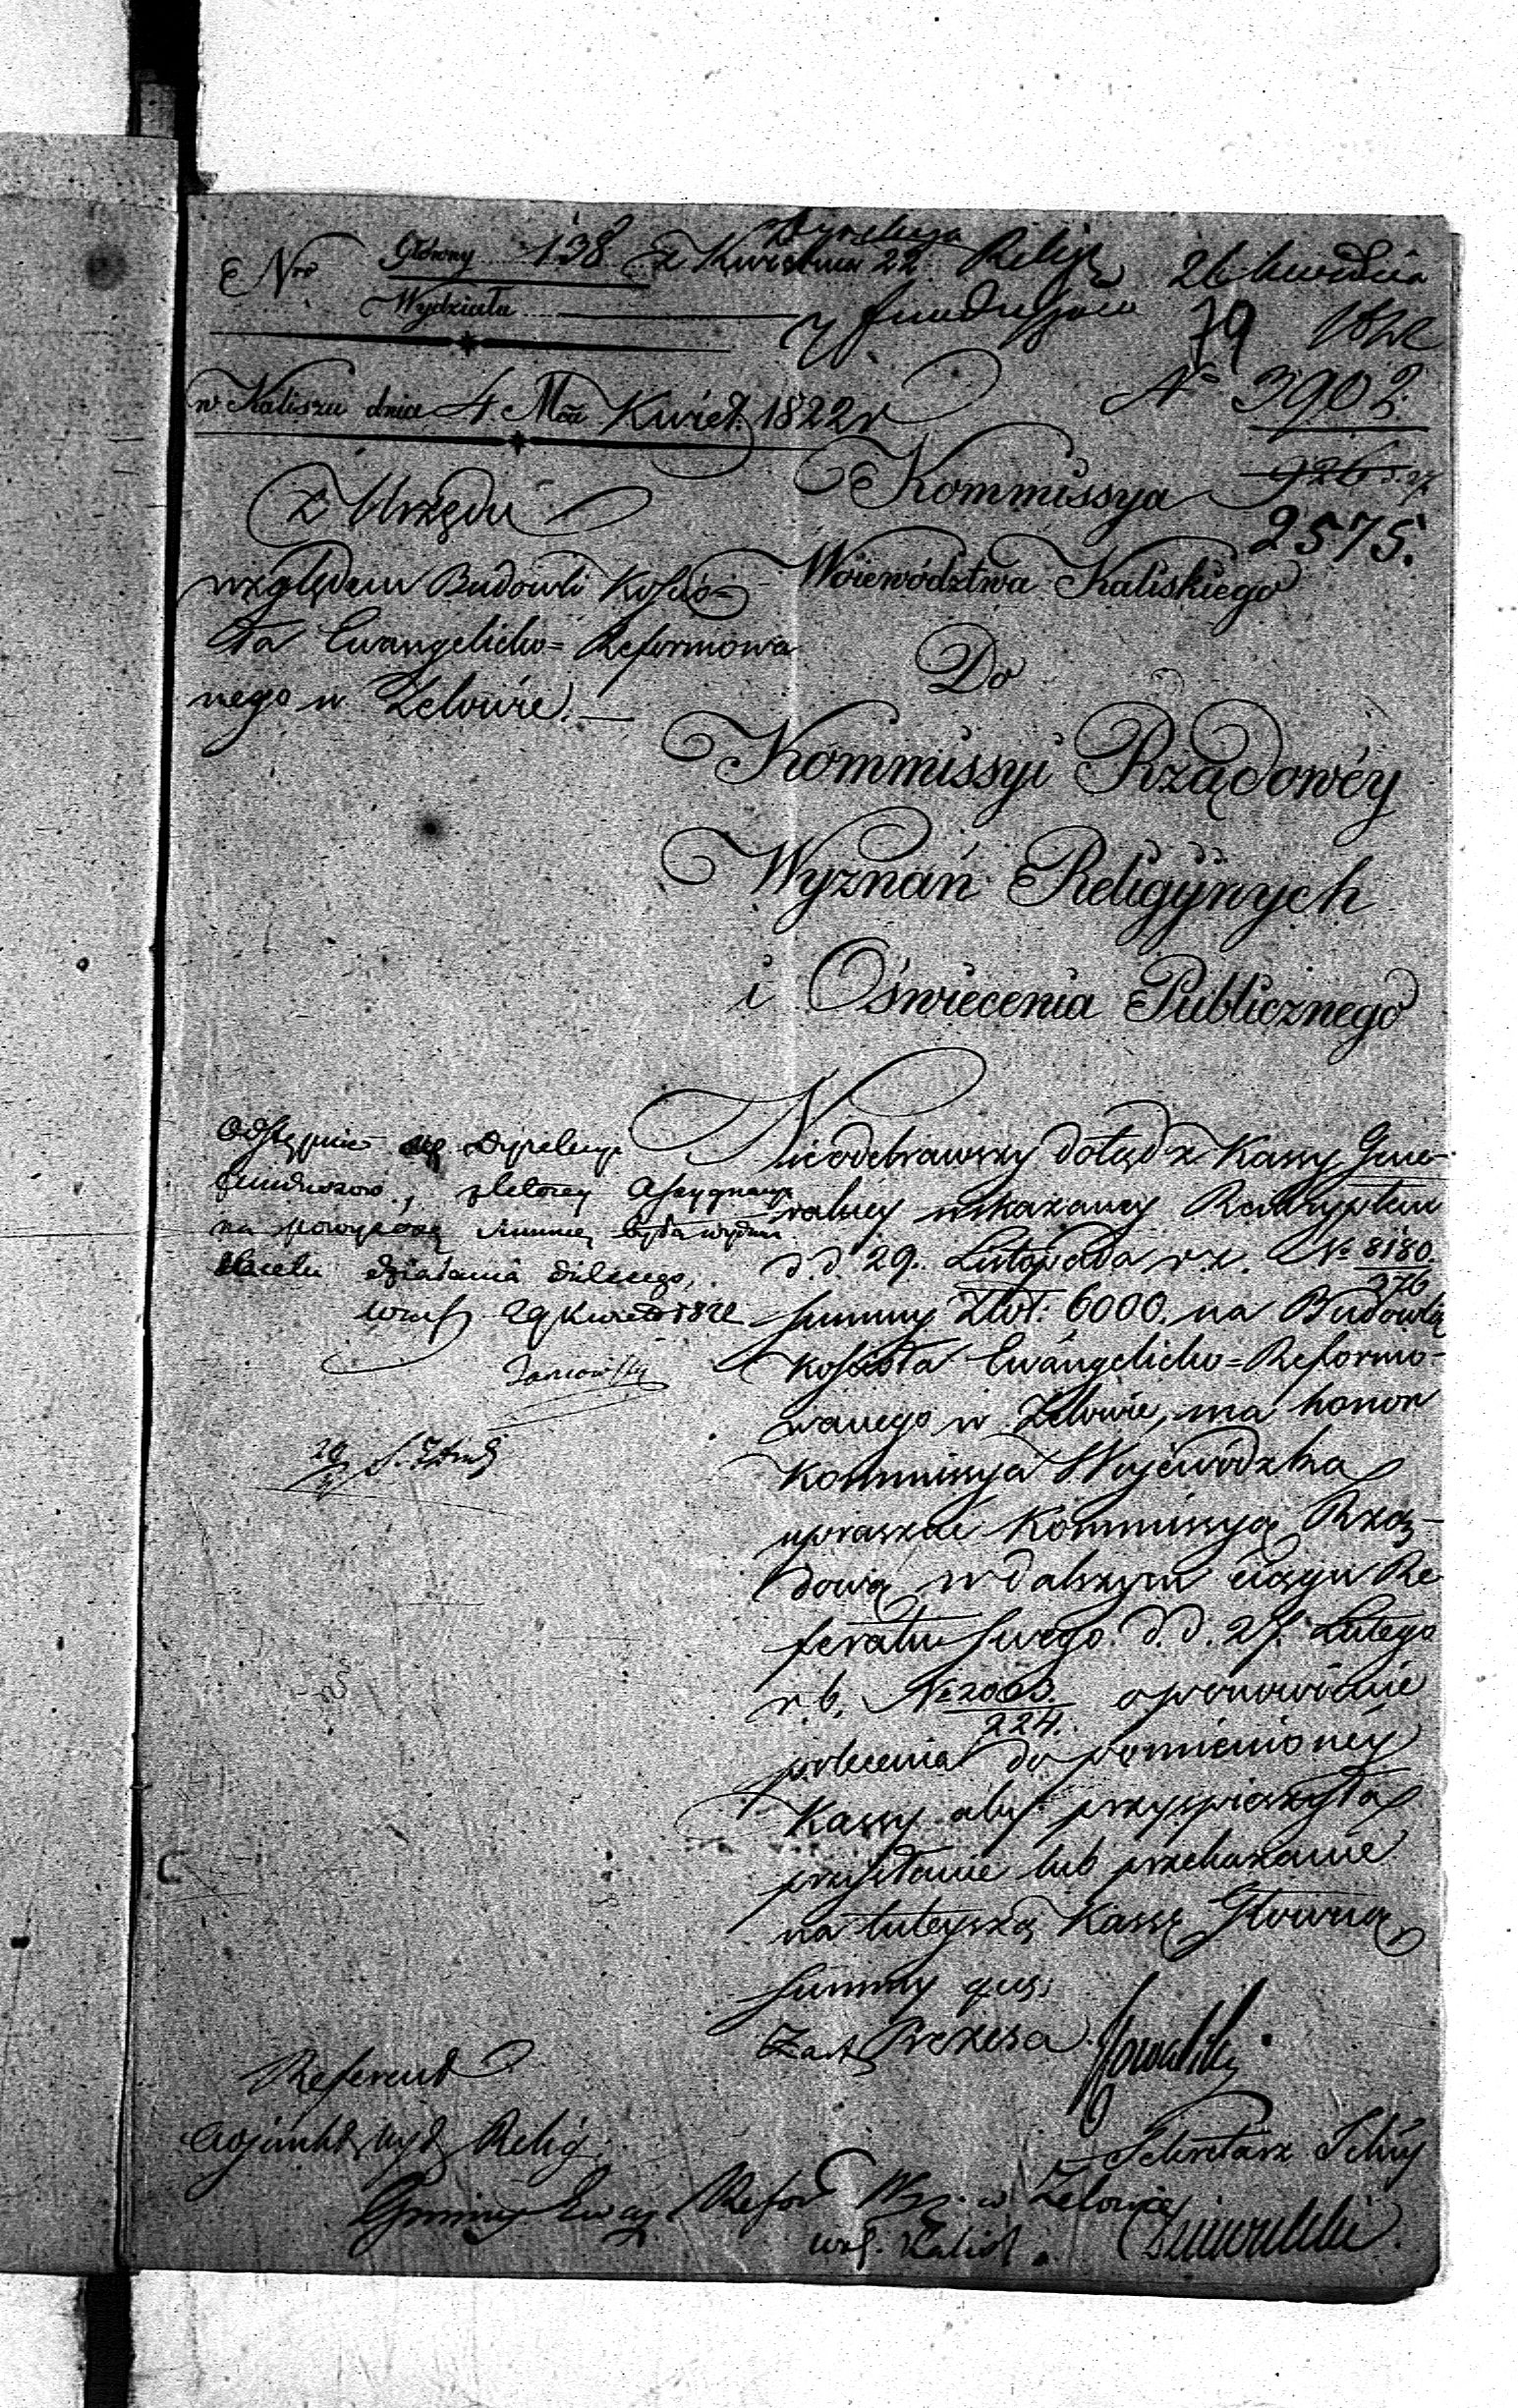 Nro Główny 138 z Kwietnia 22
Wydziału
Dyrekcya Religi
y funduszów
26 kwietnia
79 1822
w Kaliszu dnia 4. Mca Kwiet. 1822 r
No 3902.
926
2575.
Z Urzędu
względem Budowli Kościo=
ła Ewangelicko=Reformowa
nego w Zelowie.
Kommissya
Woiewództwa Kaliskiego
Do
Kommissyi Rządowéy
Wyznań Religiynych
i Oświecenia Publicznego
Odstępuie się Dyrekcyi
funduszow, z którey Assygnacya
na powyższą summę była wydana
w celu działania dalszego,
29 Kwiet 1822
Nieodebrawszy dotąd z Kassy Gene-
ralney wskazaney Reskryptem
d. d. 29. Listopada r. z. No 8180./376
summy Złot: 6000. na Budowlą
Kościoła Ewangelicko=Reformo-
wanego w Zelowie, ma honor
Kommissya Wojewodzka
upraszać Kommissyą Rzą-
dową w dalszym ciągu Re
feratu swego d. d. 27. Lutego
r. b. No 2063./224. o ponowienie
polecenia do pomienioney
Kassy aby przyspieszyła
przysłanie lub przekazanie
na tuteyszą Kassę Głowną
summy qus:
Zast Prezesa
Referend
Wyd Relig.
Sekretarz Jlny
Gminy Ewag Refor Wyz. w Zelowie